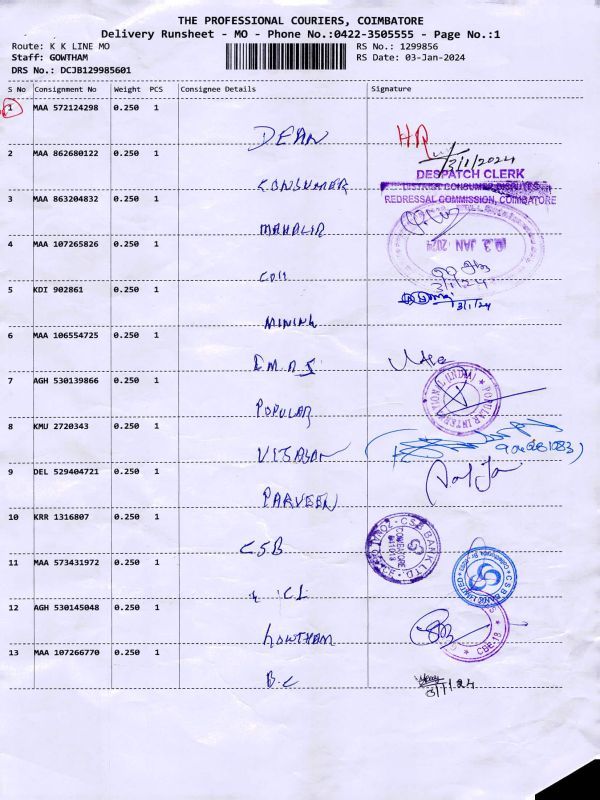 THE PROFESSIONAL COURIERS, COIMBATORE
Delivery Runsheet - MO - Phone No.:0422-3505555 - Page No.:1
Route: K K LINE MO
RS No.: 1299856
Staff: GOWTHAM
RS Date: 03-Jan-2024
DRS No.: DCJB129985601
S No Consignment No Weight PCS Consignee Details Signature
1 MAA 572124298 0.250 1
DEAN HR
3/1/2024
2 MAA 862680122 0.250 1
DESPATCH CLERK
CONSUMER DISTRICT CONSUMER DISPUTES
REDRESSAL COMMISSION, COIMBATORE
3 MAA 863204832 0.250 1
MAHALIR
03 JAN 2024
4 MAA 107265826 0.250 1
3/1/24
5 KDI 902861 0.250 1
3/1/24
MINING
6 MAA 106554725 0.250 1
7 AGH 530139866 0.250 1
POPULAR
8 KMU 2720343 0.250 1
VIJAYAN
9 DEL 529404721 0.250 1
PARVEEN
10 KRR 1316807 0.250 1
CSB
CSB BANK LTD.
COIMBATORE
641018
11 MAA 573431972 0.250 1
CSB BANK LIMITED
12 AGH 530145048 0.250 1
GOWTHAM
CBE-18
13 MAA 107266770 0.250 1
B.C
3/1/24